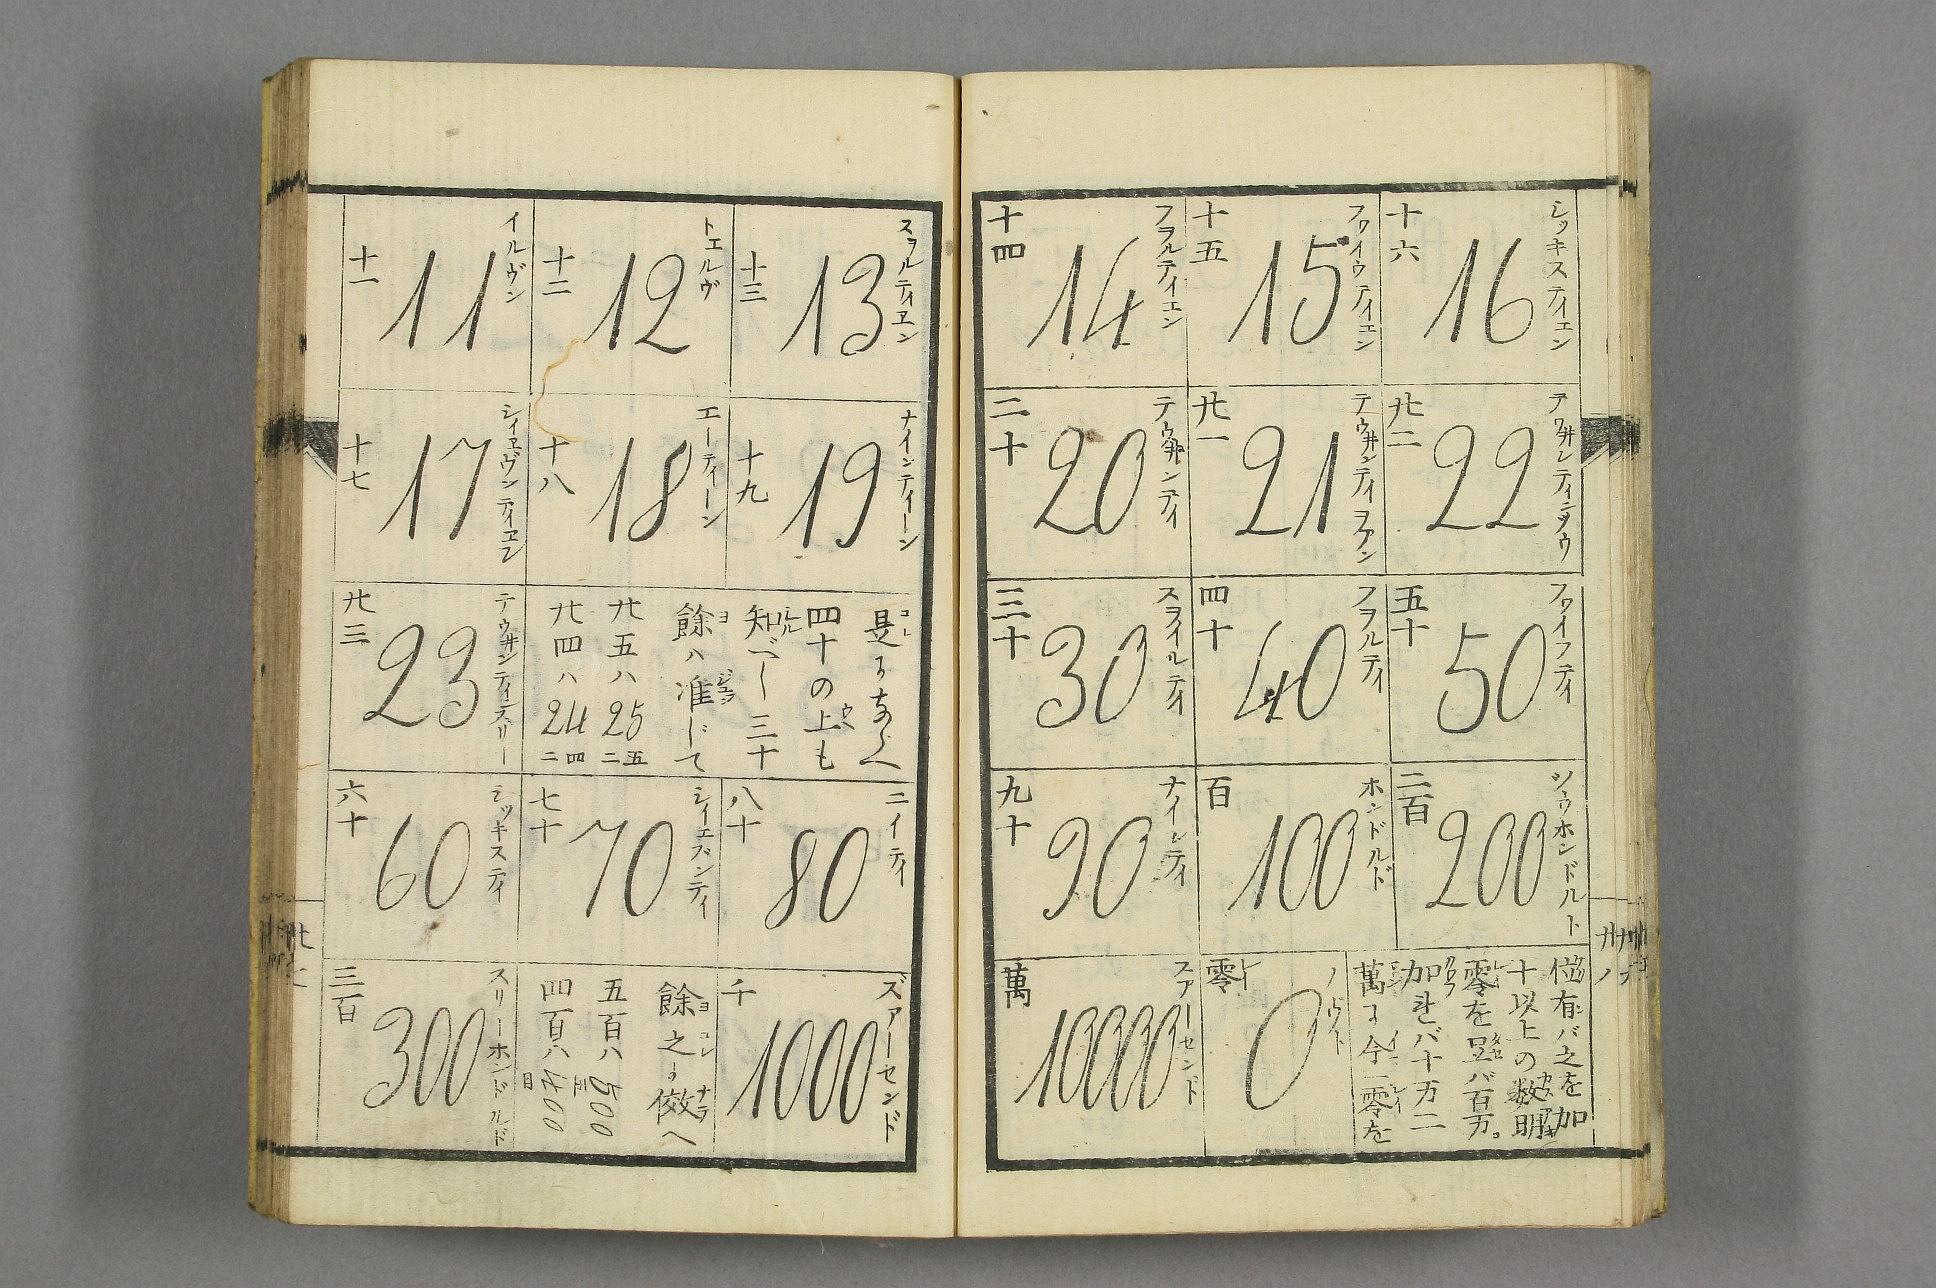 十一
11
イルヴン
十二
12
トエルヴ
十三
13
スヲルティヱン
十四
14
フヲルティエン
十五
15
フワイウティエン
十六
16
シッキスティエン
十七
17
シイヱヴンティヱン
十八
18
エーティーン
十九
19
ナインティーン
二十
20
テウ井ンティ
廿一
21
テウ井ンティヲワン
廿二
22
テウ井ンティニツウ
廿三
23
テウ井ンティニスリー
廿四ハ24 二四
廿五ハ25 二五
餘ハ准じて
知べし三十
四十の上も
是にならへ
三十
30
スヲイルティ
四十
40
フヲルティ
五十
50
フワイフティ
六十
60
シッキスティ
七十
70
シイエバンティ
八十
80
ニイティ
九十
90
ナインティ
百
100
ホンドルド
二百
200
ツウホンドルト
三百
300
スリーホンドルド
四百ハ400
五百ハ500
餘之に倣へ
千
1000
ズアーセンド
萬
10000
スアーセンド
零
0
ノウト
萬に今一零を
加れバ十万二
零を置バ百万。
十以上の数明
位有バ之を加